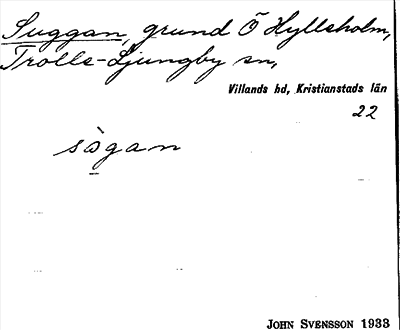 Suggan, grund Ö Hyllsholm,
Trolle-Ljungby sn,
Villands hd, Kristianstads län
22
sògan
JOHN SVENSSON 1933